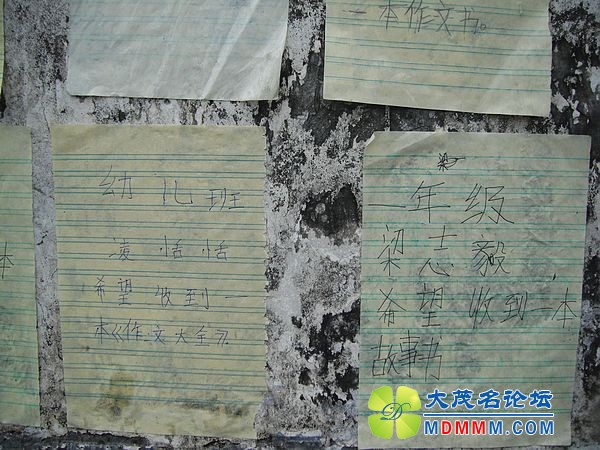 一本作文书。
本
幼儿班
凌恬恬
希望收到一
本《作文大全》。
一年级
梁志毅
希望收到一本
故事书
大茂名论坛
MDMMM.COM